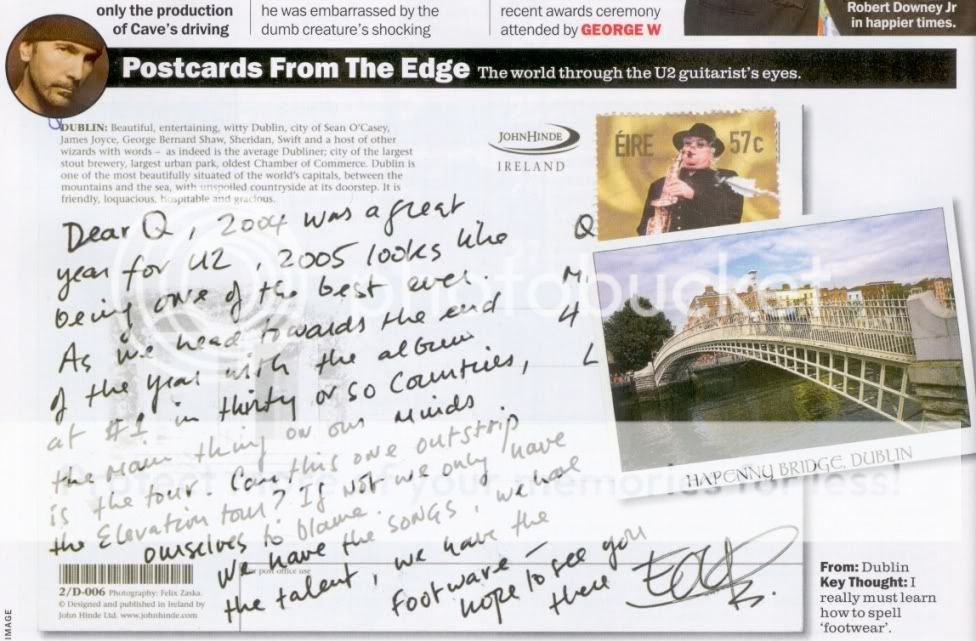 only the production
of Cave's driving
he was embarrassed by the
dumb creature's shocking
recent awards ceremony
attended by GEORGE W
Robert Downey Jr
in happier times.
Postcards From The Edge The world through the U2 guitarist's eyes.
DUBLIN: Beautiful, entertaining, witty Dublin, city of Sean O'Casey,
James Joyce, George Bernard Shaw, Sheridan, Swift and a host of other
wizards with words – as indeed is the average Dubliner; city of the largest
stout brewery, largest urban park, oldest Chamber of Commerce. Dublin is
one of the most beautifully situated of the world's capitals, between the
mountains and the sea, with unspoiled countryside at its doorstep. It is
friendly, loquacious, hospitable and gracious.
JOHN HINDE
IRELAND
ÉIRE 57c
Dear Q, 2004 was a great
year for U2, 2005 looks like
being one of the best ever.
As we head towards the end
of the year with the album
at #1 in thirty or so countries,
the main thing on our minds
is the tour. Can this one outstrip
the Elevation tour? If not we only have
ourselves to blame.
We have the songs, we have
the talent, we have the
footware –
hope to see you
there
Edge
Q
M
4
L
photobucket
Protect more of your memories for less!
HA'PENNY BRIDGE, DUBLIN
post office use
2/D-006 Photography: Felix Zaska.
© Designed and published in Ireland by
John Hinde Ltd. www.johnhinde.com
From: Dublin
Key Thought: I
really must learn
how to spell
'footwear'.
IMAGE